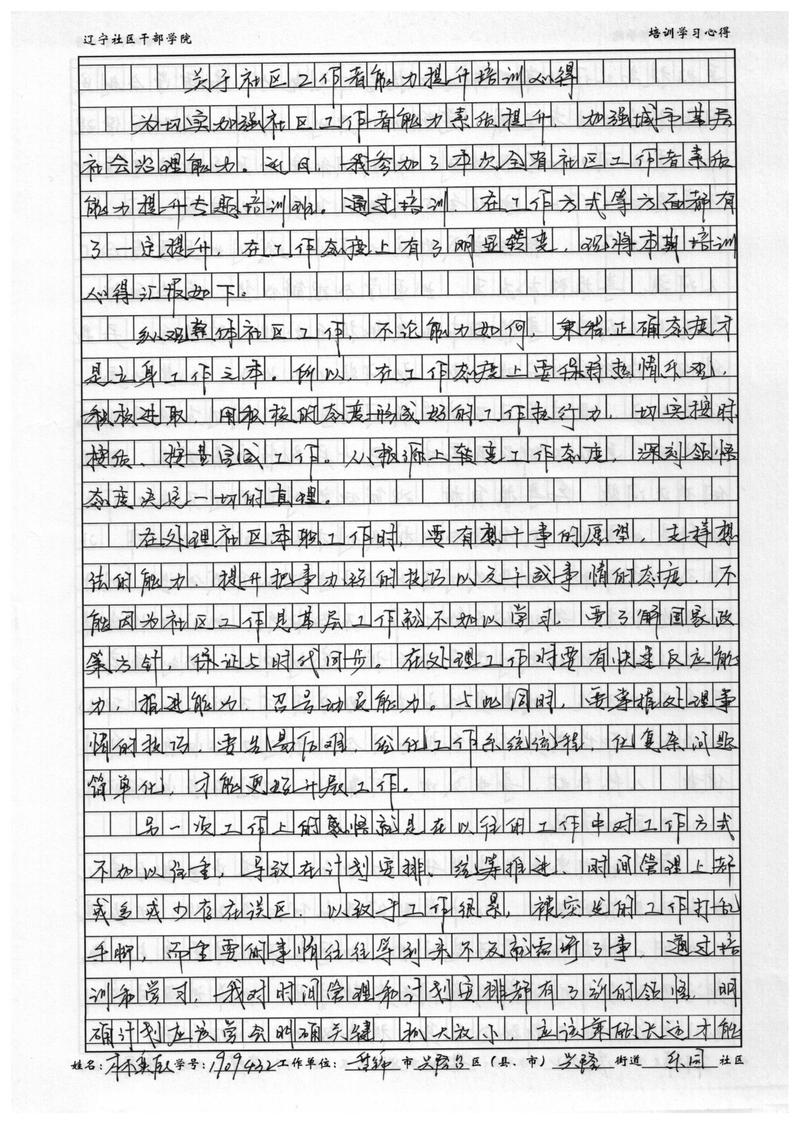 辽宁社区干部学院 培训学习心得
关于社区工作者能力提升培训心得
为切实加强社区工作者能力素质提升,加强城市基层
社会治理能力。近日,我参加了本次全省社区工作者素质
能力提升专题培训班。通过培训,在工作方式等方面都有
了一定提升,在工作态度上有了明显转变,现将本期培训
心得汇报如下。
纵观整体社区工作,不论能力如何,秉持正确态度才
是立身工作之本。所以,在工作态度上要保持热情乐观、
积极进取,用积极的态度形成好的工作执行力,切实按时
按质、按量完成工作,从根源上转变工作态度,深刻领悟
态度决定一切的真理。
在处理社区本职工作时,要有想干事的愿望,支撑想
法的能力,提升把事办好的技巧以及干成事情的态度,不
能因为社区工作是基层工作就不加以学习,要了解国家政
策方针,保证与时代同步。在处理工作时要有快速反应能
力、推进能力、召号动员能力。与此同时,要掌握处理事
情的技巧,要先易后难,优化工作系统流程,化复杂问题
简单化,才能更好开展工作。
另一项工作上的感悟就是在以往的工作中对工作方式
不加以注重,导致在计划安排、统筹推进、时间管理上都
或多或少存在误区,以致于工作很累,被突发的工作打乱
手脚,而重要的事情往往等到来不及就需讲了事,通过培
训和学习,我对时间管理和计划安排都有了新的领悟,明
确计划应该学会明确关键,抓大放小,应该兼顾长远才能
姓名: 学号:1909432 工作单位: 市 兴隆台 区(县、市) 兴隆 街道 社区